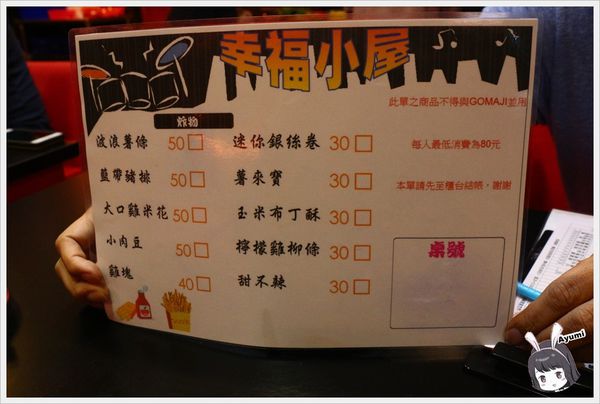 幸福小屋
炸物
波浪薯條 50
藍帶豬排 50
大口雞米花 50
小肉豆 50
雞塊 40
迷你銀絲卷 30
薯來寶 30
玉米布丁酥 30
檸檬雞柳條 30
甜不辣 30
此單之商品不得與GOMAJI並用
每人最低消費為80元
本單請先至櫃台結帳，謝謝
桌號
Ayumi